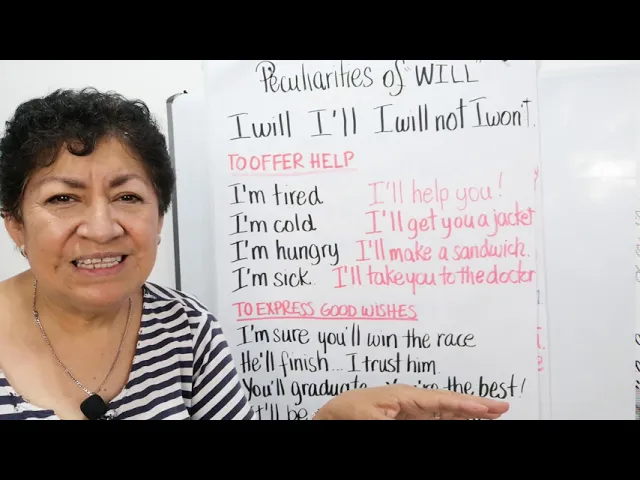 Peculiarities of "WILL"
I will I'll I will not I won't.
TO OFFER HELP
I'm tired I'll help you!
I'm cold I'll get you a jacket
I'm hungry I'll make a sandwich.
I'm sick. I'll take you to the doctor
TO EXPRESS GOOD WISHES
I'm sure you'll win the race
He'll finish... I trust him.
You'll graduate You're the best!
It'll be